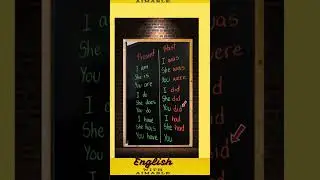 Present Past
I am I was
She is She was
You are You were
I do I did
She does She did
You do You did
I have I had
She has She had
You have You
English
WITH
AIMABLE